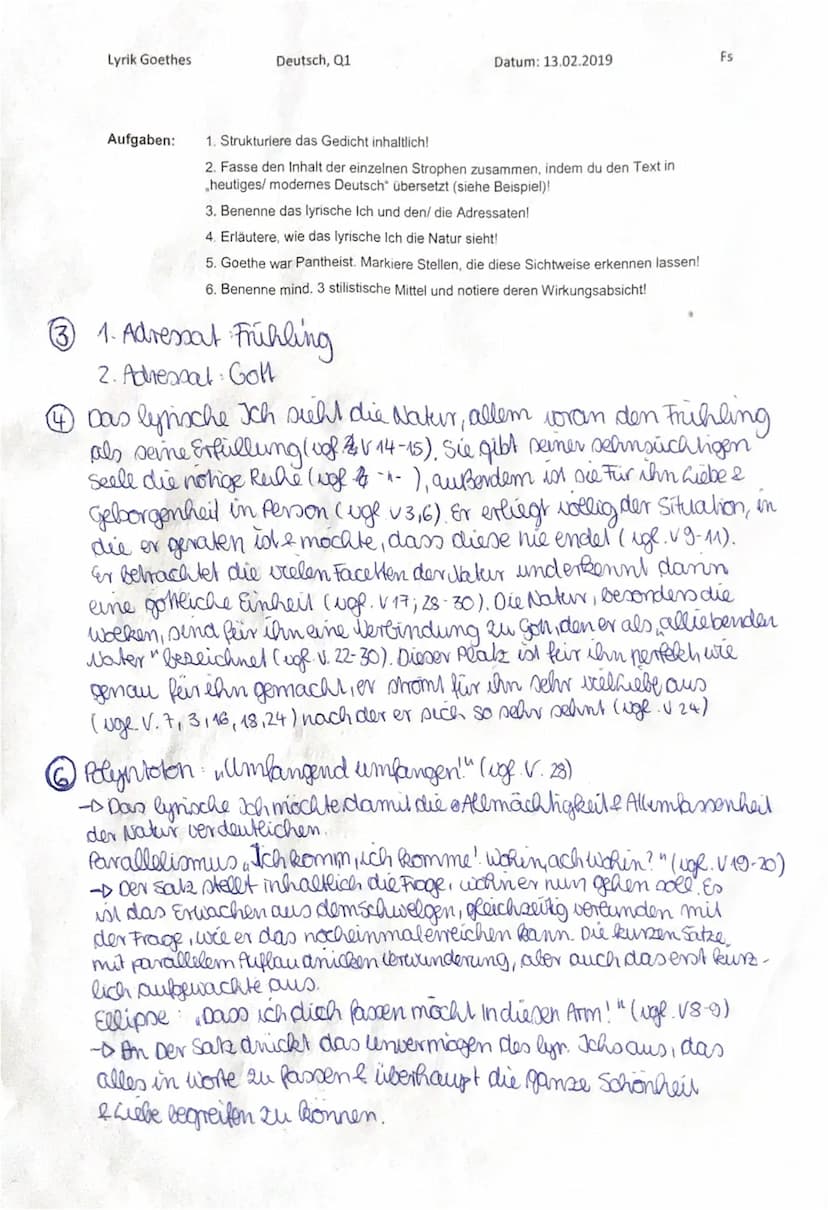 Lyrik Goethes Deutsch, Q1 Datum: 13.02.2019 Fs
Aufgaben: 1. Strukturiere das Gedicht inhaltlich!
2. Fasse den Inhalt der einzelnen Strophen zusammen, indem du den Text in
„heutiges/ modernes Deutsch“ übersetzt (siehe Beispiel)!
3. Benenne das lyrische Ich und den/ die Adressaten!
4. Erläutere, wie das lyrische Ich die Natur sieht!
5. Goethe war Pantheist. Markiere Stellen, die diese Sichtweise erkennen lassen!
6. Benenne mind. 3 stilistische Mittel und notiere deren Wirkungsabsicht!
③ 1. Adressat: Frühling
2. Adressat: Gott
④ Das lyrische Ich sieht die Natur, allem voran den Frühling
als seine Erfüllung (vgl. V 14-15). Sie gibt seiner sehnsüchtigen
Seele die nötige Ruhe (vgl. -"- ), außerdem ist sie für ihn Liebe &
Geborgenheit in Person (vgl V 3,6). Er erliegt völlig der Situation, in
die er geraten ist & möchte, dass diese nie endet (vgl. V 9-11).
Er betrachtet die vielen Facetten der Natur und erkennt darin
eine göttliche Einheit (vgl. V 17; 28-30). Die Natur, besonders die
Wolken, sind für ihn eine Verbindung zu Gott, den er als „alliebenden
Vater" bezeichnet (vgl. V. 22-30). Dieser Platz ist für ihn perfekt, wie
genau für ihn gemacht, er strömt für ihn sehr viel Liebe aus
(vgl. V. 7, 3, 16, 18, 24) nach der er sich so sehr sehnt (vgl. V 24)
⑥ Polyptoton: „Umfangend umfangen!" (vgl. V. 28)
→ Das lyrische Ich möchte damit die Allmächtigkeit & Allumfassenheit
der Natur verdeutlichen.
Parallelismus „Ich komm, ich komme! Wohin, ach wohin?" (vgl. V 19-20)
→ Der Satz stellt inhaltlich die Frage, wohin er nun gehen soll. Es
ist das Erwachen aus dem Schwelgen, gleichzeitig verbunden mit
der Frage, wie er das nocheinmal erreichen kann. Die kurzen Sätze
mit parallelem Aufbau drücken Verwunderung, aber auch das erst kürz-
lich aufgewachte aus.
Ellipse: „Dass ich dich fassen möcht In diesen Arm!" (vgl. V 8-9)
→ Der Satz drückt das Unvermögen des lyr. Ichs aus, das
alles in Worte zu fassen & überhaupt die ganze Schönheit
& Liebe begreifen zu können.